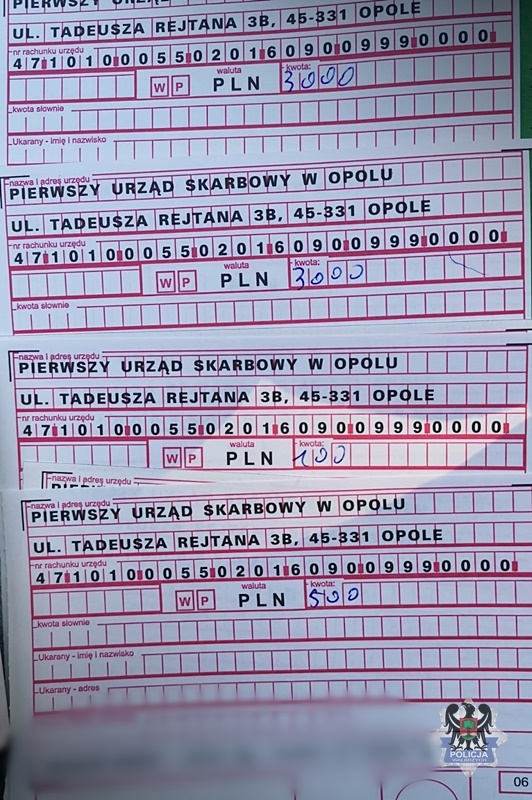 PIERWSZY URZĄD SKARBOWY W OPOLU
UL. TADEUSZA REJTANA 3B, 45-331 OPOLE
nr rachunku urzędu
47 1010 0055 0201 6090 0999 0000
waluta
kwota:
W P PLN 3000
kwota słownie
Ukarany - imię i nazwisko
nazwa i adres urzędu
PIERWSZY URZĄD SKARBOWY W OPOLU
UL. TADEUSZA REJTANA 3B, 45-331 OPOLE
nr rachunku urzędu
47 1010 0055 0201 6090 0999 0000
waluta
kwota:
W P PLN 3000
kwota słownie
nazwa i adres urzędu
PIERWSZY URZĄD SKARBOWY W OPOLU
UL. TADEUSZA REJTANA 3B, 45-331 OPOLE
nr rachunku urzędu
47 1010 0055 0201 6090 0999 0000
waluta
kwota:
W P PLN 100
nazwa i adres urzędu
nazwa i adres urzędu
PIERWSZY URZĄD SKARBOWY W OPOLU
UL. TADEUSZA REJTANA 3B, 45-331 OPOLE
nr rachunku urzędu
47 1010 0055 0201 6090 0999 0000
waluta
kwota:
W P PLN 500
kwota słownie
Ukarany - imię i nazwisko
Ukarany - adres
POLICJA
WAŁBRZYCH
06